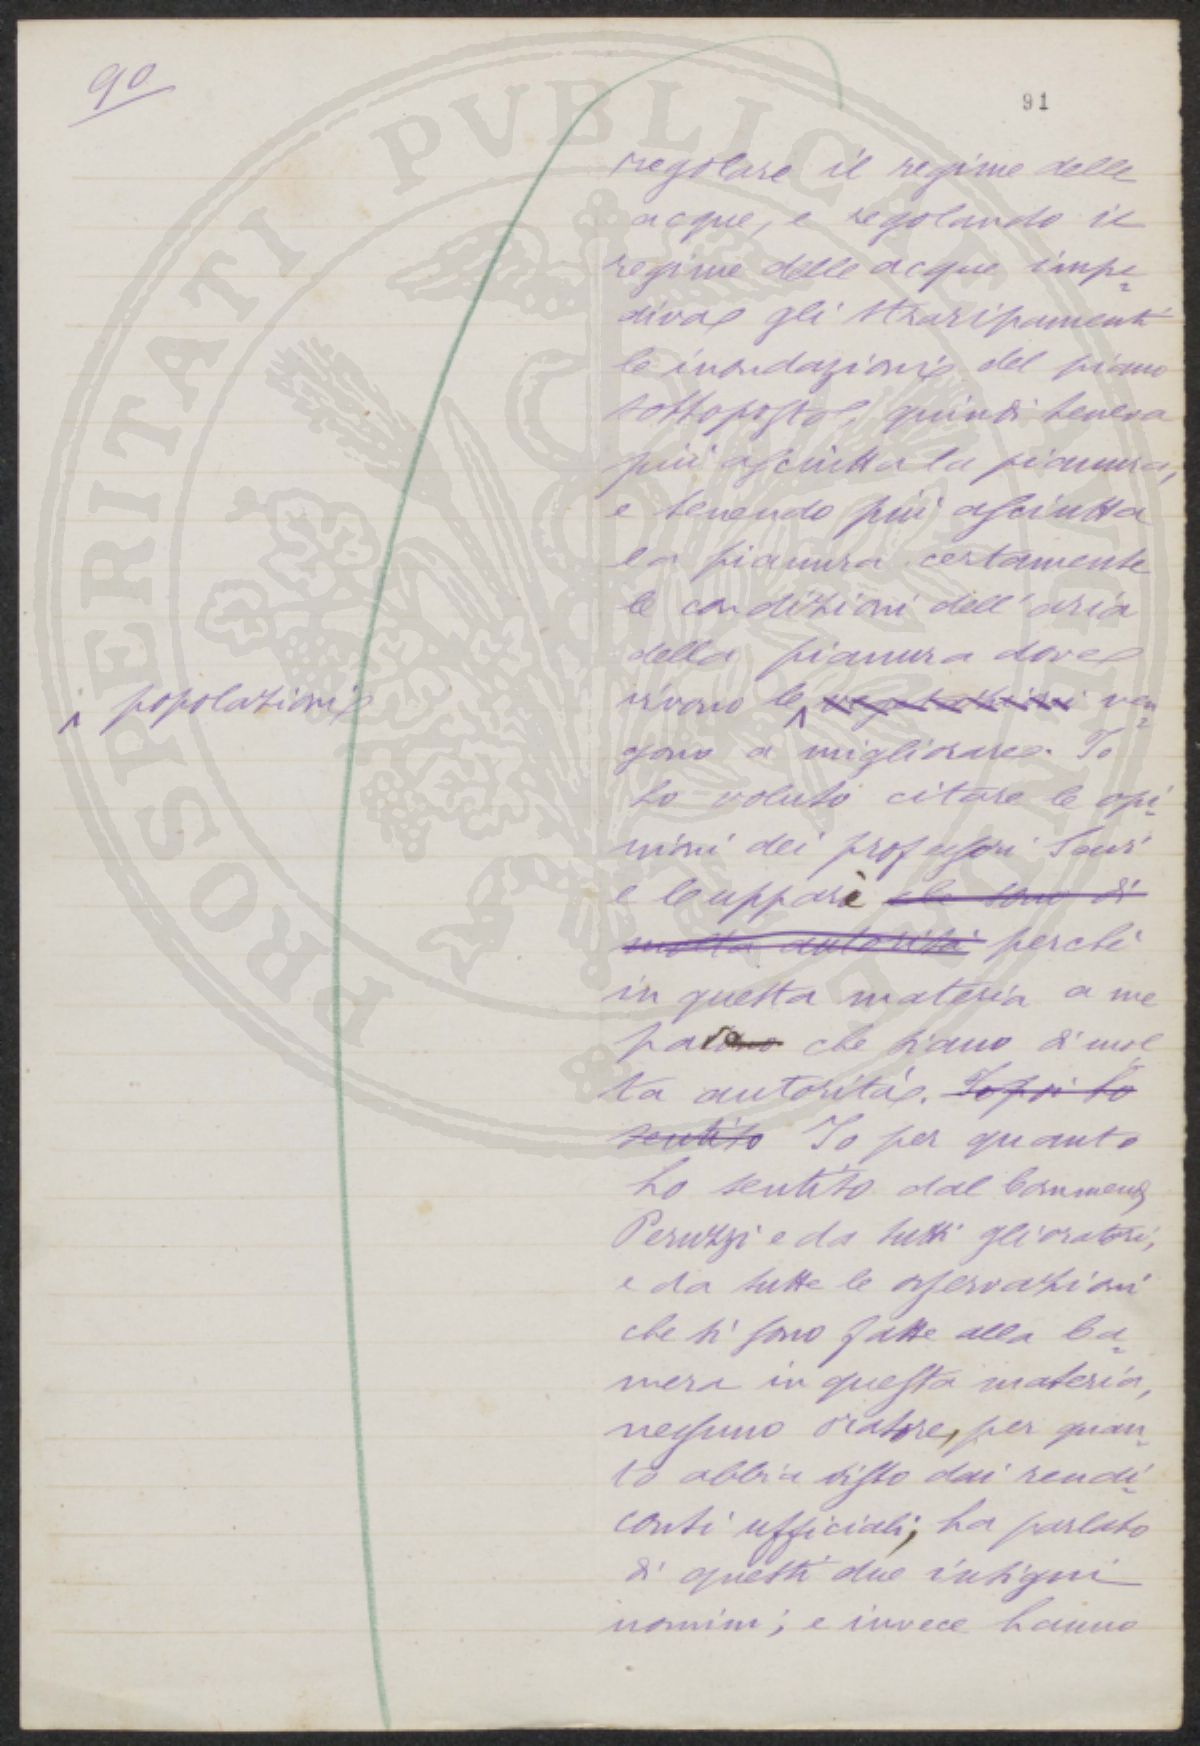 90
91
regolare il regime delle
acque, e regolando il
regime delle acque impe-
diva gli straripamenti
le inondazioni del piano
sottoposto, quindi teneva
più asciutta la pianura,
e tenendo più asciutta
la pianura certamente
le condizioni dell'aria
della pianura dove
popolazioni
vivono le vegetazioni ven-
gono a migliorare. Io
ho voluto citare le opi-
nioni dei professori Savi
e che sono di
molta autorità perchè
in questa materia a me
che siano di mol-
ta autorità. Io poi ho
sentito Io per quanto
ho sentito dal Commend.
Peruzzi e da tutti gli oratori,
e da tutte le osservazioni
che si sono fatte alla Ca-
mera in questa materia,
nessuno oratore, per quan-
to abbia visto dai rendi-
conti ufficiali; ha parlato
di questi due insigni
uomini; e invece hanno
PROSPERITATI PVBLICAE